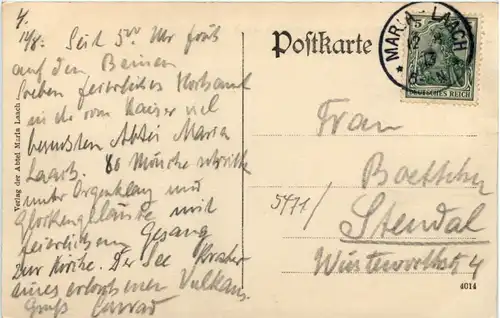 4.
12/8. Seit 5 00 Uhr früh
auf den Beinen
Soeben feierliches Hochamt
in der vom Kaiser viel
besuchten Abtei Maria
Laach. 80 Mönche schritten
unter Orgenklang und
Glockengeläute mit
feierlichem Gesang
zur Kirche. Der See Krater
eines erloschenen Vulkans.
Gruß Conrad
Verlag der Abtei Maria Laach
Postkarte
MARIA-LAACH
12
DEUTSCHES REICH
Frau
Boettcher
5471/
Stendal
Wüsteworthstr 4
4014